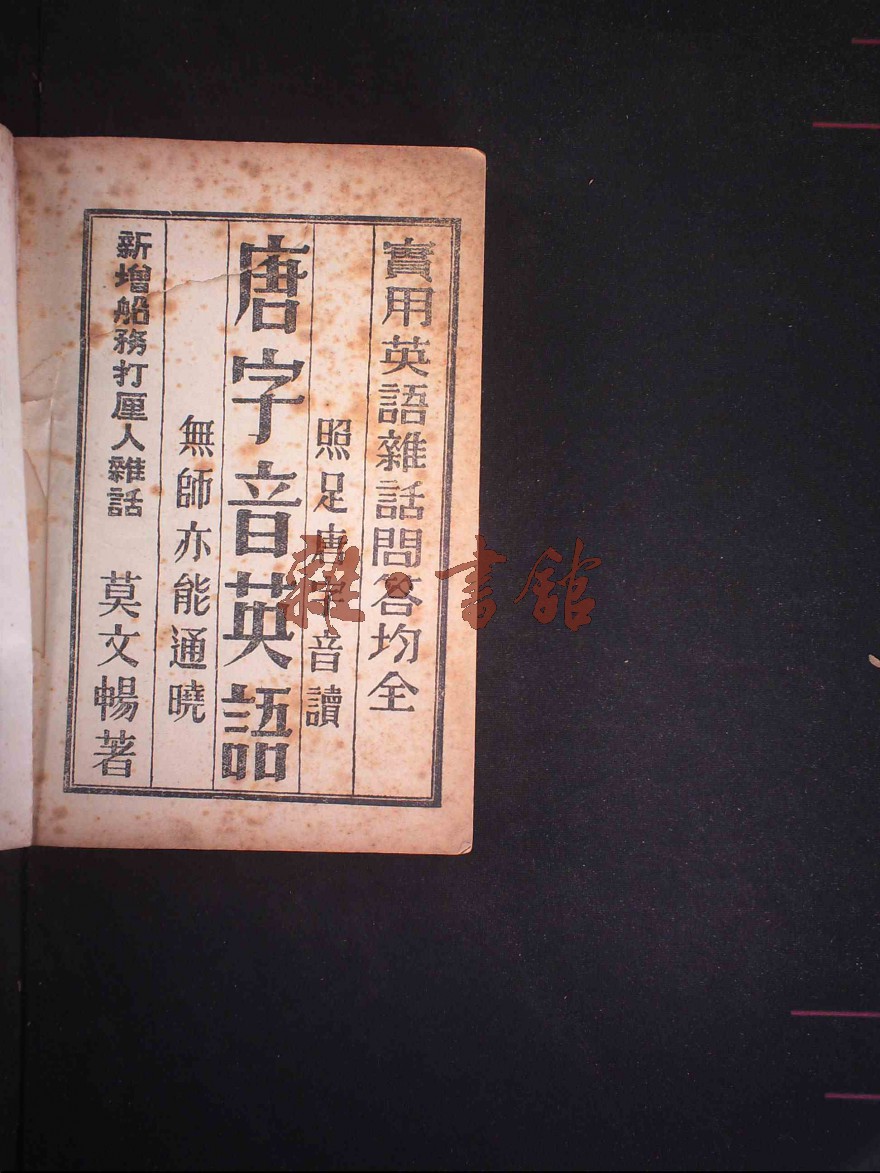 實用英語雜話問答均全
照足唐字音讀
唐字音英語
無師亦能通曉
新增船務打厘人雜話 莫文暢著
雜·書館